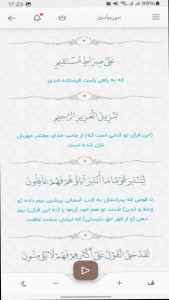 17:23 99%
سوره یاسین
عَلَىٰ صِرَاطٍ مُسْتَقِيمٍ
(که به راهی راست فرستاده شدی.
تَنْزِيلَ الْعَزِيزِ الرَّحِيمِ
(این قرآن تو کتابی است که) از جانب خدای مقتدر مهربان
نازل شده است.
لِتُنْذِرَ قَوْمًا مَا أُنْذِرَ آبَاؤُهُمْ فَهُمْ غَافِلُونَ
تا قومی که پدرانشان به کتب آسمانی پیشین بیم داده (و
وعظ و اندرز) شدند تو هم خود آن‌ها را (به این قرآن) بیم
دهی (و از قهر حق بترسانی) که ایشان سخت غافلند.
لَقَدْ حَقَّ الْقَوْلُ عَلَىٰ أَكْثَرِهِمْ فَهُمْ لَا يُؤْمِنُونَ